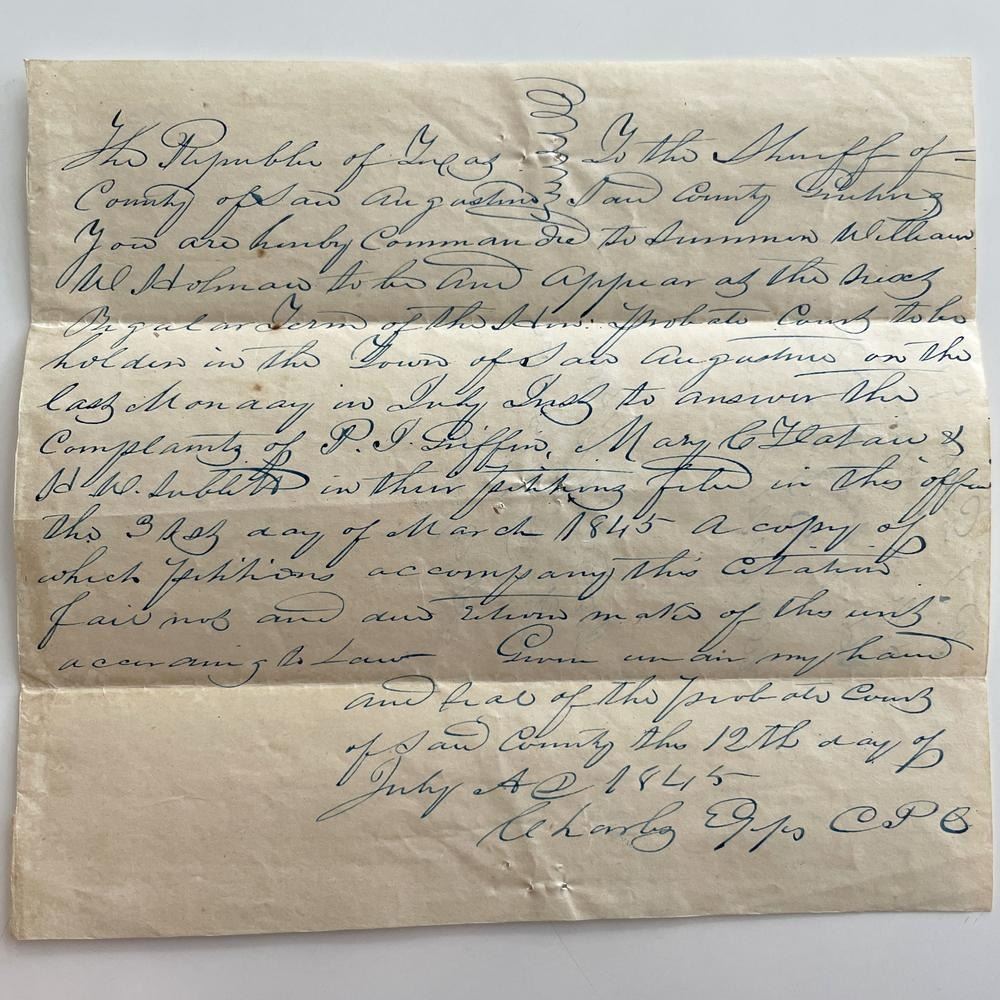 The Republic of Texas To the Sheriff of
County of San Augustine Said County Greeting
You are hereby Commanded to summon William
W Holman to be and appear at the next
Regular Term of the Hon: Probate Court to be
holden in the Town of San Augustine on the
last Monday in July Inst to answer the
Complaints of P. J. Griffin, Mary C &
H. W. Sublett in their petitions filed in this office
the 31st day of March 1845 A copy of
which petitions accompany this citation
fail not and due return make of this writ
according to Law Given under my hand
and seal of the probate Court
of said County this 12th day of
July AD 1845
Charles Epps C P C